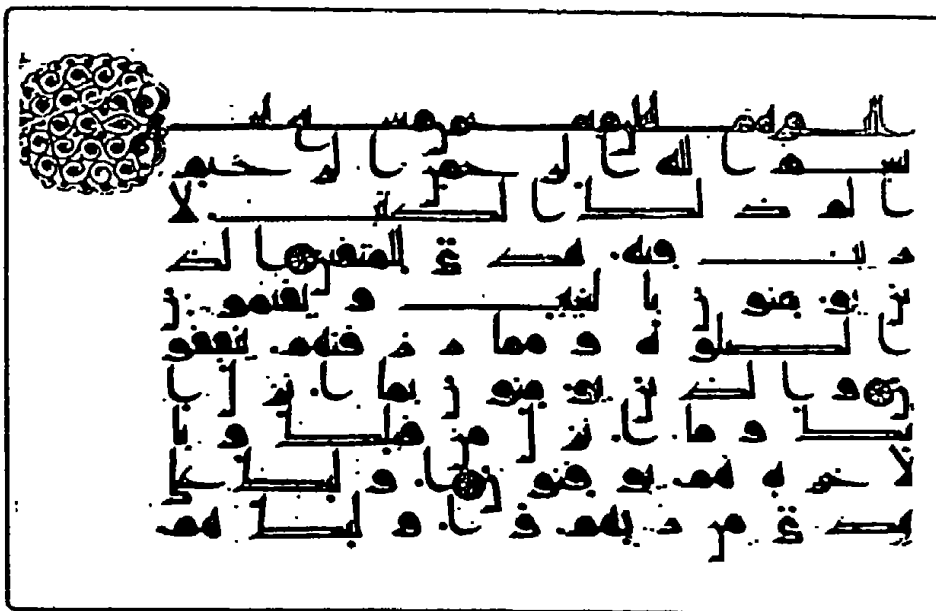 بسم الله الرحمن الرحيم
الم ذلك الكتب لا
ريب فيه هدى للمتقين الذ
ين يومنون بالغيب و يقيمون
الصلوه و مما رزقنهم ينفقو
ن و الذين يومنون بما انزل ا
ليك و ما انزل من قبلك و با
لاخره هم يوقنون اولئك على
هدى من ربهم و اولئك هم